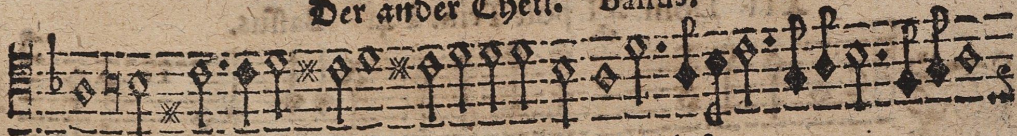 Der ander Theil. Bassus.